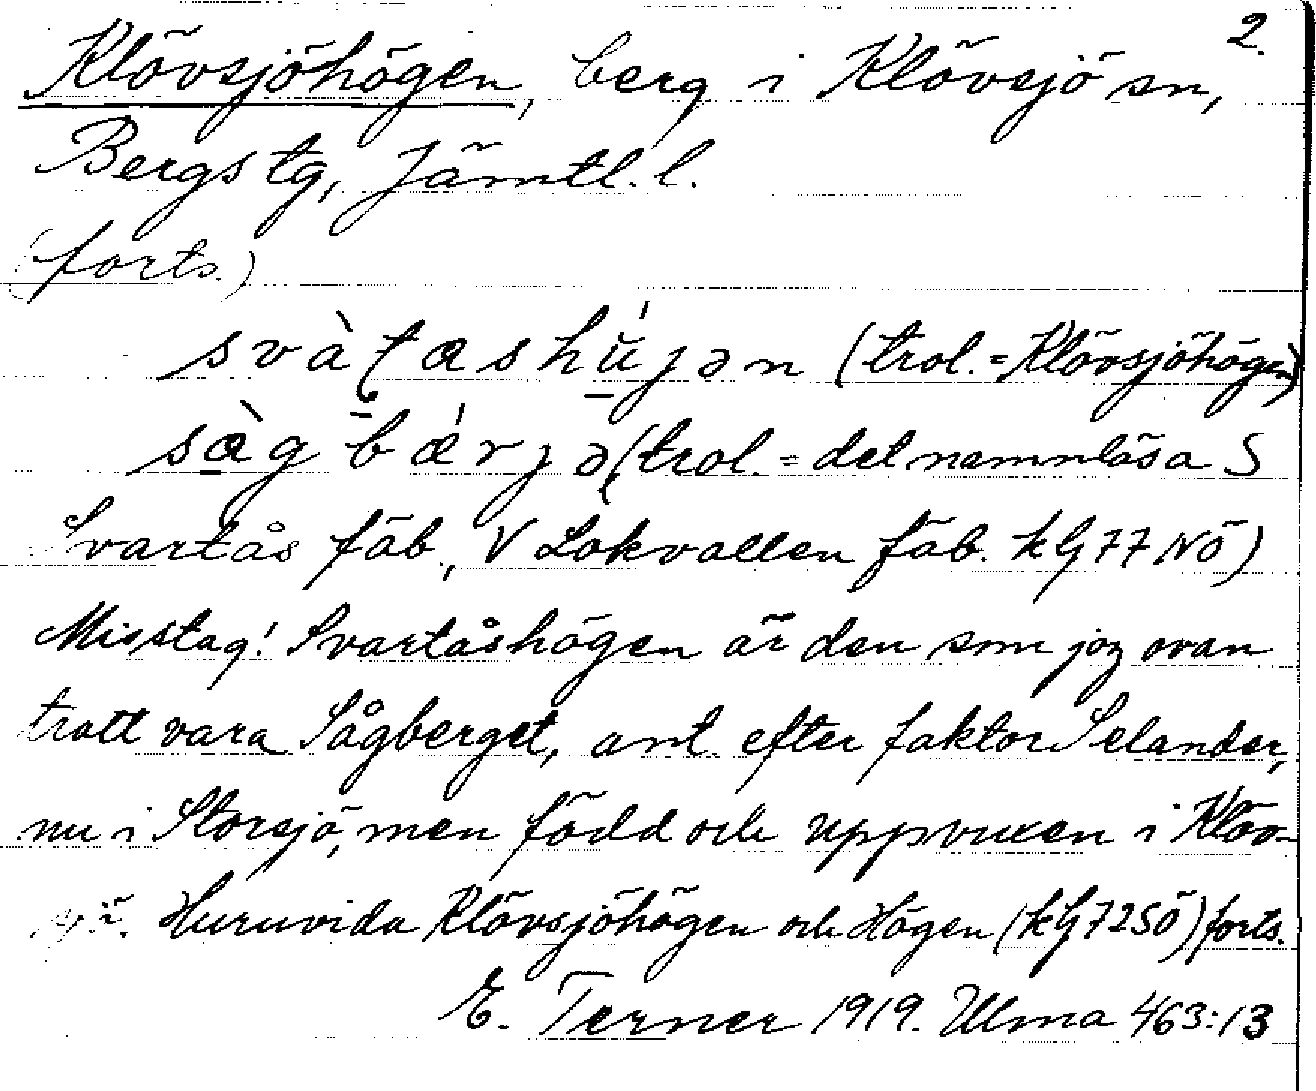 2.
Klövsjöhögen, berg i Klövsjö sn,
Bergs tg, Jämtl. l.
(forts.)
svàt̨ashújən (trol. = Klövsjöhögen)
sæ̀g bǽrjə (trol. = det namnlösa S
Svartås fäb, V Lokvallen fäb. kG 77 NÖ)
Misstag! Svartåshögen är den som jag ovan
trott vara Sågberget, ant. efter faktor Selander,
nu i Storsjö, men född och uppvuxen i Klöv-
sjö. Huruvida Klövsjöhögen och Högen (kG 72 SÖ) forts.
E. Terner 1919. Ulma 463:13